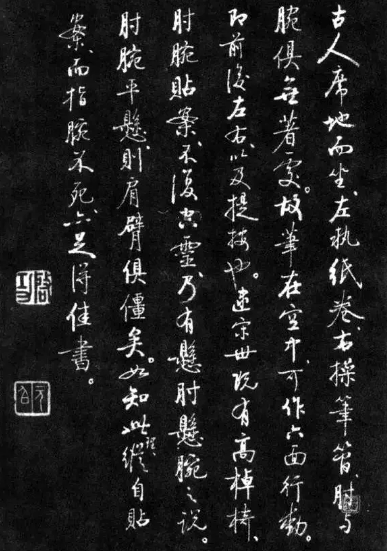 古人席地而坐,左执紙卷,右操筆管,肘与
腕俱無著處。故筆在空中,可作六面行動。
即前後左右,以及提按也。逮宗世既有高桌椅、
肘腕貼案,不復空靈,乃有懸肘懸腕之説。
肘腕平懸,則肩臂俱僵矣。如知此理,縱自貼
案,而指腕不死,亦足得佳書。